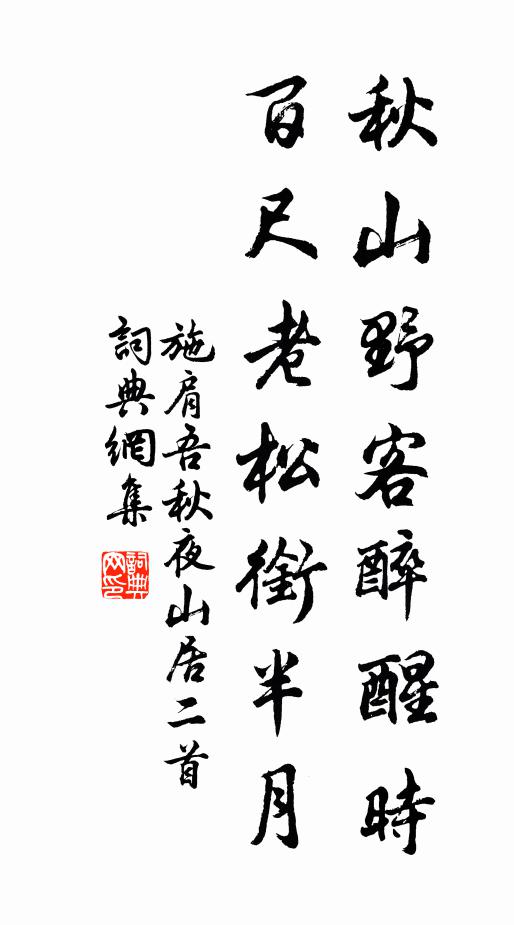 秋山野客醉醒時
百尺老松銜半月
施肩吾秋夜山居二首
詞典網集
詞典
网印